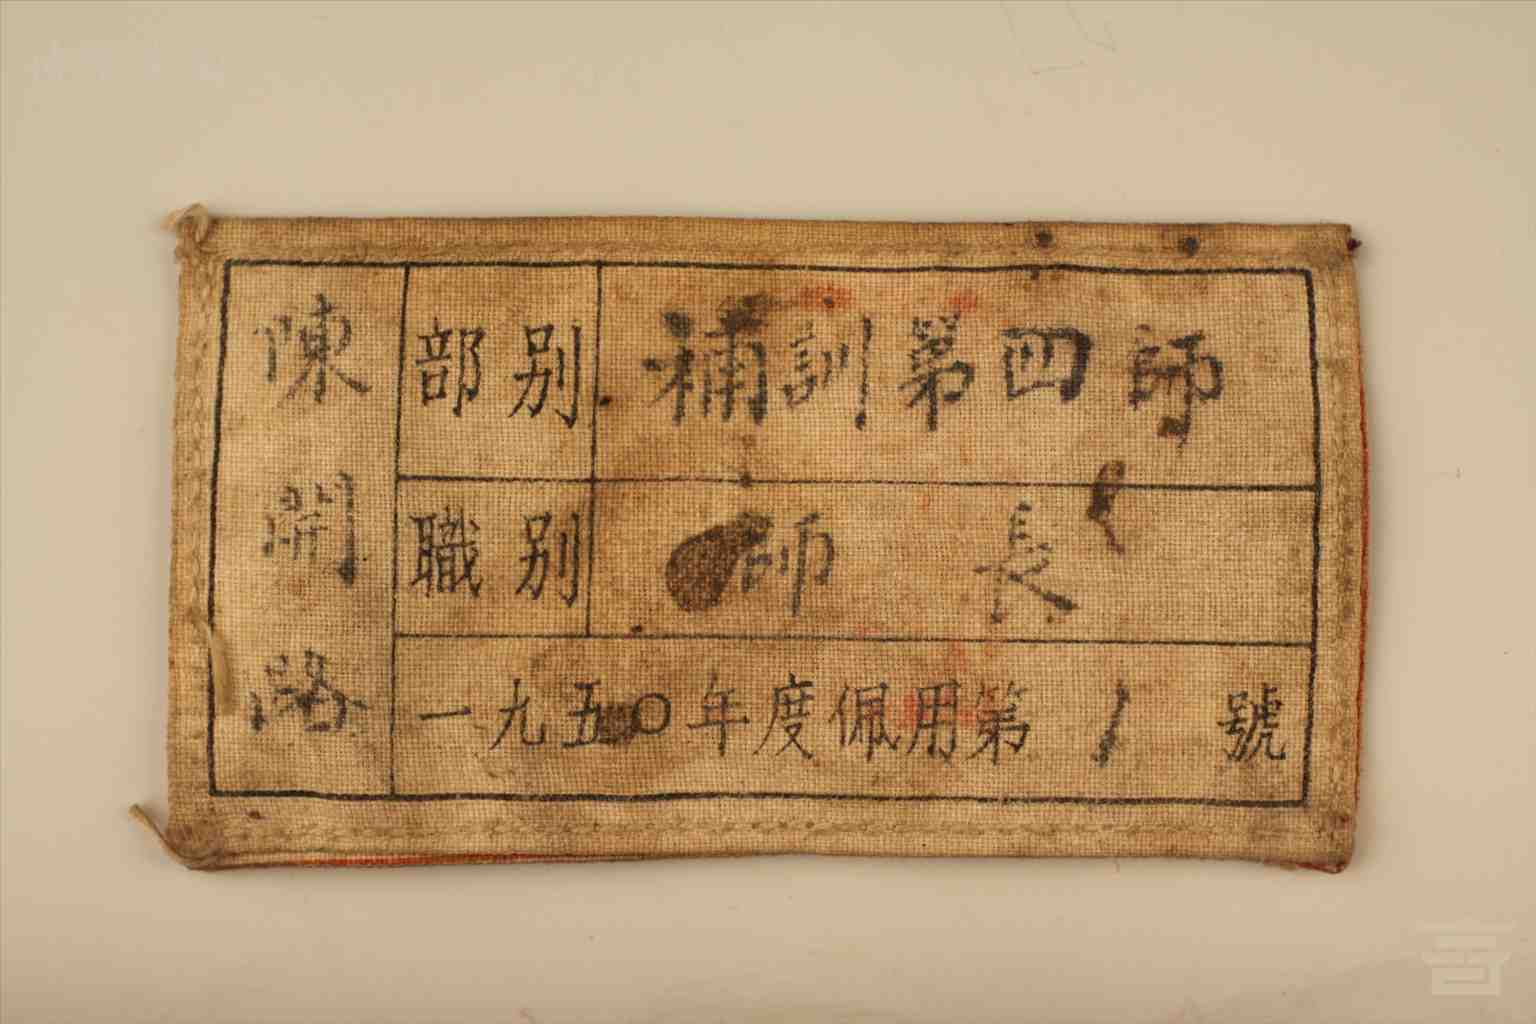 陳開路
部別 補訓第四師
職別 師長
一九五〇年度佩用第1號